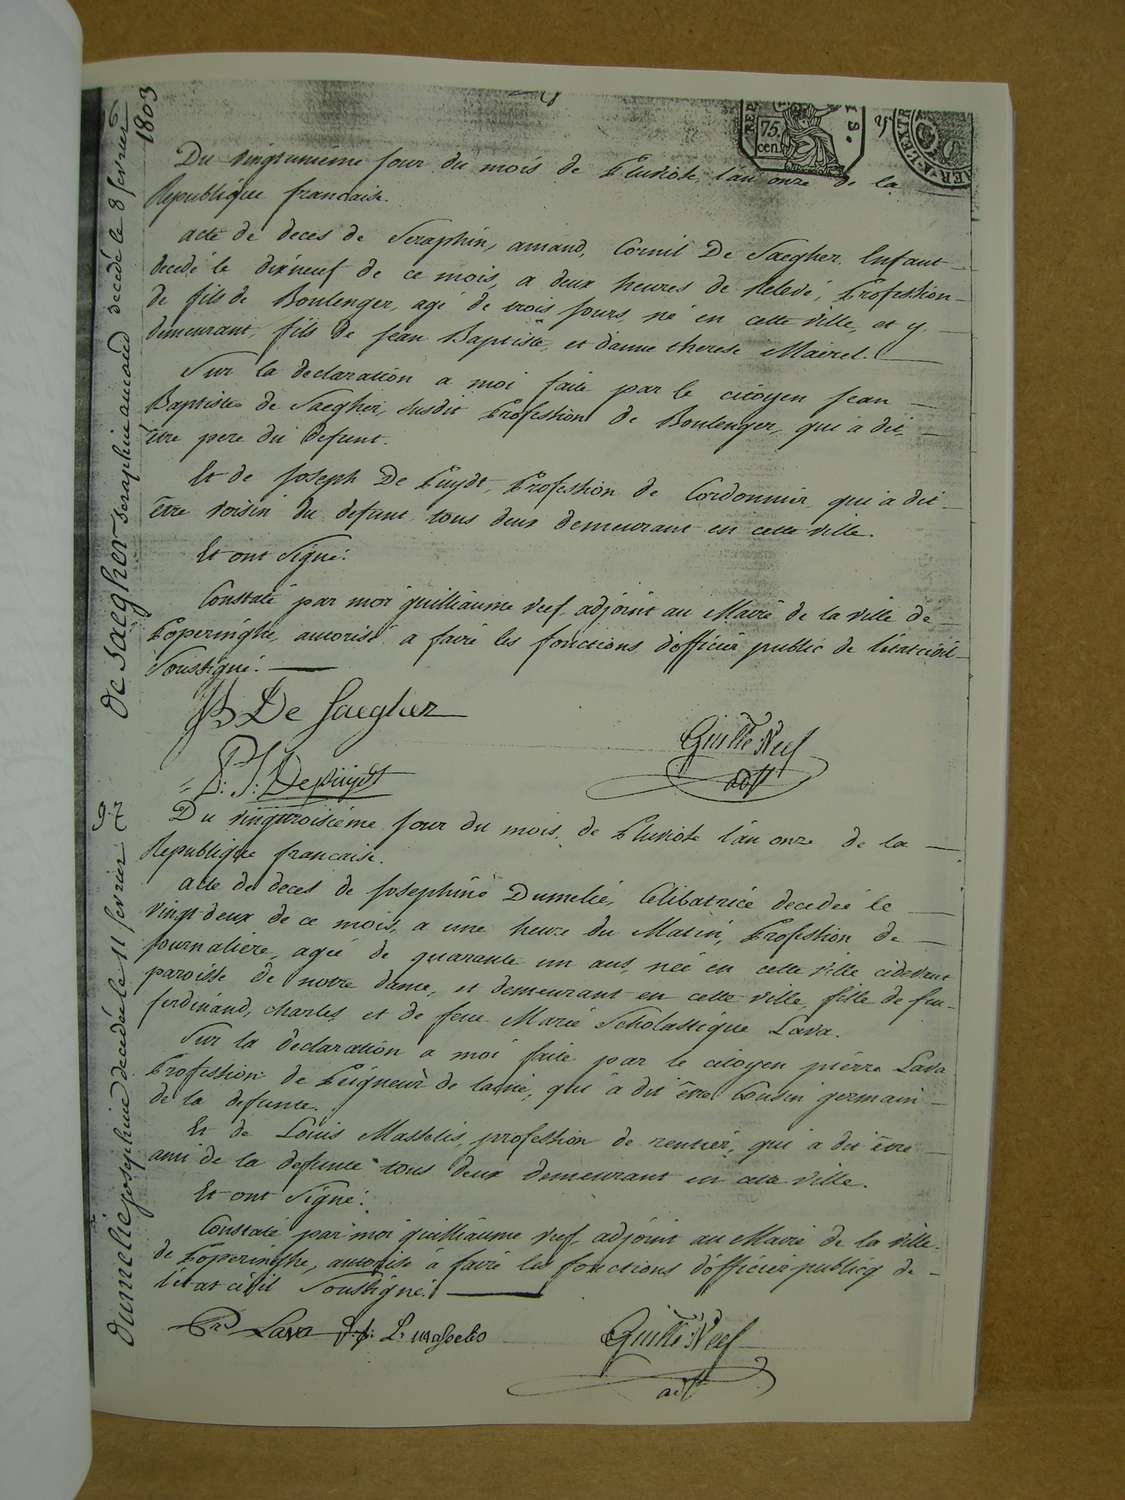 1803
De Saegher seraphin amand decedé le 8 fevrier
75
cen
Du vingtunieme jour du mois de Pluviose l'an onze de la
Republique francaise.
acte de deces de Seraphin, amand, Cornil De Saegher Enfant
decedé le dixneuf de ce mois, a deux heures de Relevé, Profession
de fils de Boulenger, agé de trois jours, né en cette ville, et y
demeurant, fils de jean Baptiste, et dame therese Mairel.
Sur la declaration a moi faite par le citoyen jean
Baptiste de Saegher, susdit Profession de Boulenger, qui a dit
être pere du defunt.
Et de joseph De Puydt, Profession de Cordonnier, qui a dit
être voisin du defunt, tous deux demeurant en cette ville.
Et ont Signé:
Constaté par moi guilliaume Neef adjoint au Maire de la ville de
Poperinghe, autorisé a faire les fonctions d'officier public de l'état civil
Soussigné:
JB De Saegher
Guille Neef
P: J: Depuijdt
adjt
97
dumelie josephine decedée le 11 fevrier
Du vingtroisieme jour du mois de Pluviose l'an onze de la
Republique francaise.
acte de deces de josephine Dumelie, Celibatrice decedée le
vingt deux de ce mois, a une heure du Matin, Profession de
journaliere, agée de quarante un ans, née en cette ville cidevant
paroisse de notre dame, et demeurant en cette ville, fille de feu
ferdinand, charles et de feue Marie Scholastique Lava.
Sur la declaration a moi faite par le citoyen pierre Lava
Profession de Peigneur de laine, qui a dit être Cousin germain
de la defunte.
Et de Louis Masselis, profession de rentier, qui a dit être
ami de la defunte tous deux demeurant en cette ville.
Et ont Signé:
Constaté par moi guilliaume Neef adjoint au Maire de la ville
de Poperinghe, autorisé à faire les fonctions d'officier publicq de
l'état civil Soussigné.
Lava
Guille Neef
adjt